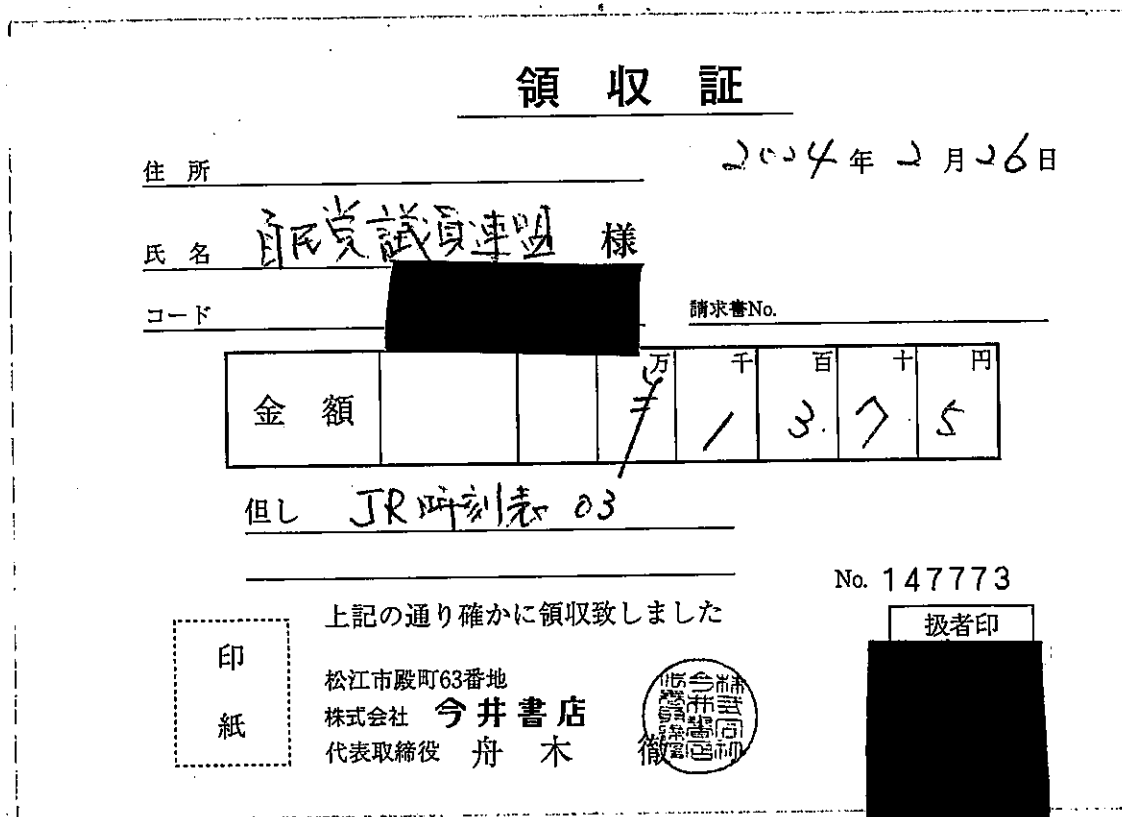 領収証
2024年2月26日
住所
氏名 自民党議員連盟 様
コード
請求書No.
金額 万千百十円
¥1375
但し JR時刻表 03
No. 147773
上記の通り確かに領収致しました
扱者印
印紙
松江市殿町63番地
株式会社 今井書店
代表取締役 舟木 徹